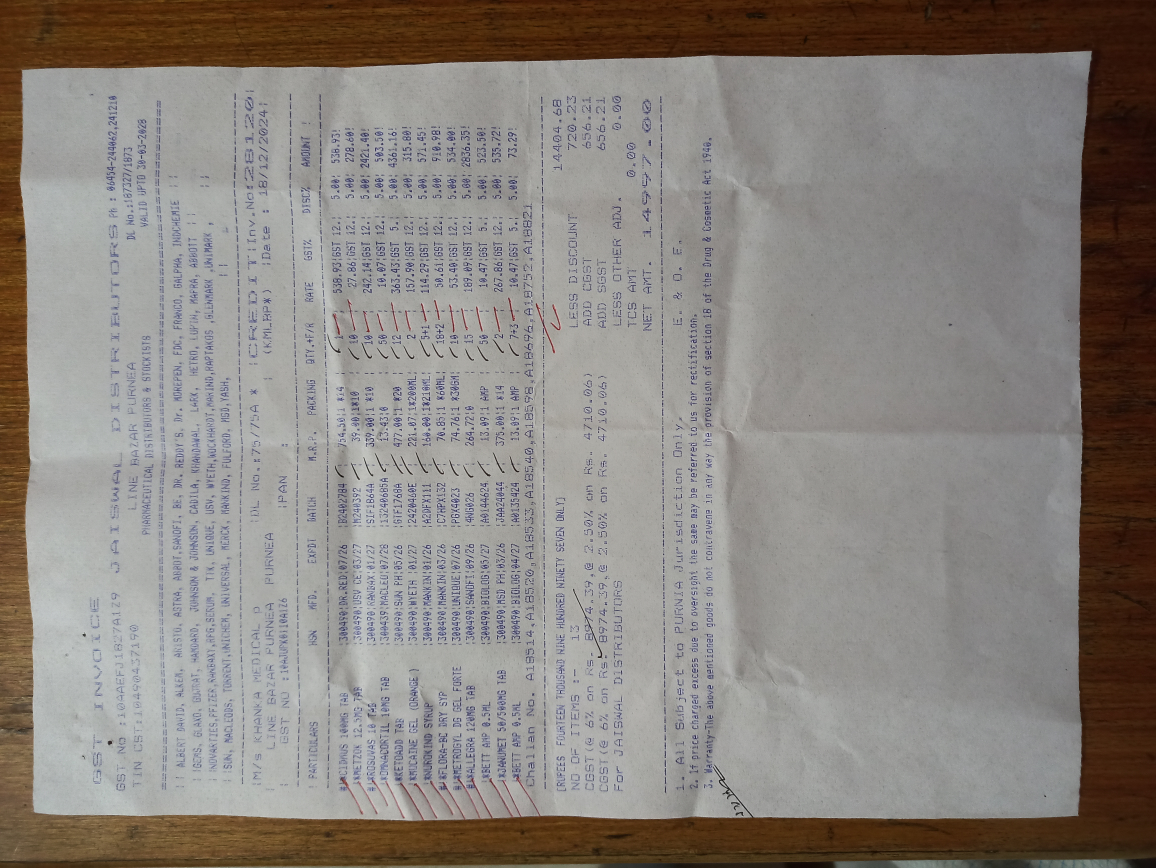 GST INVOICE
GST NO :10AAEFJ1827A1Z9 JAISWAL DISTRIBUTORS Ph : 06454-244062,241210
TIN CST:10490437190 LINE BAZAR PURNEA DL No.:187327/1873
PHARMACEUTICAL DISTRIBUTORS & STOCKISTS VALID UPTO 30-03-2028
!! ALBERT DAVID, ALKEM, ARISTO, ASTRA, ABBOT,SANOFI, BE, DR. REDDY'S, Dr. MOREPEN, FDC, FRANCO, GALPHA, INDCHEMIE !!
GLAXO, GUJRAT, HAMDARD, JOHNSON & JOHNSON, CADILA, KHANDAWAL, LARK, HETRO, LUPIN, MAPRA, ABBOTT !!
!NOVARTIES,PFIZER,RANBAXY,RPG,SERUM, TTK, UNIQUE, USV, WYETH,WOCKHARDT,MAKIND,RAPTAKOS ,GLENMARK ,UNIMARK , !!
!SUN, MACLEODS, TORRENT,UNICHEM, UNIVERSAL, MERCK, MANKIND, FULFORD, MSD,YASH, !!
!M/s KHANKA MEDICAL P !DL No.:75/75A * !CREDIT!Inv.No:28120!
! LINE BAZAR PURNEA PURNEA ! (KMLRP*) !Date : 18/12/2024!
! GST NO : !PAN :
! PARTICULARS HSN MFD. EXPDT BATCH M.R.P. PACKING QTY.+F/R RATE GST% DISC% AMOUNT !
#CIDMUS 100MG TAB !300490!DR.RED!07/26 !B2402784 754.50!1 *14 1 538.93!GST 12.! 5.00! 538.93!
*METZOK 12.5MG TAB !300490!USV CE!03/27 !M240392 39.00!1*10 10 27.86!GST 12.! 5.00! 278.60!
#ROSUVAS 10 TAB !300490!RANBAX!01/27 !SIF1864A 339.00!1 *10 10 242.14!GST 12.! 5.00! 2421.40!
*OMNACORTIL 10MG TAB !300439!MACLEO!07/28 !13240685A 13.43!0 50 10.07!GST 12.! 5.00! 503.50!
*KETOADD TAB !300490!SUN PH!05/26 !GTF1768A 477.00!1 *20 12 363.43!GST 5.! 5.00! 4361.16!
*MUCAINE GEL (ORANGE) !300490!WYETH !01/26 !2420460E 221.07!1*200ML! 2 157.90!GST 12.! 5.00! 315.80!
*NUROKIND SYRUP !300490!MANKIN!01/26 !A2DFX111 160.00!1*210ML! 5+1 114.29!GST 12.! 5.00! 571.45!
#*FLORA-BC DRY SYP !300490!MANKIN!03/26 !C7APX132 70.85!1 *60ML! 18+2 50.61!GST 12.! 5.00! 910.98!
#*METROGYL DG GEL FORTE !300490!UNIQUE!07/26 !PGX4023 74.76!1 *30GM! 10 53.40!GST 12.! 5.00! 534.00!
#ALLEGRA 120MG TAB !300490!SANOFI!09/26 !4NG026 264.72!0 15 189.09!GST 12.! 5.00! 2836.35!
*BETT AMP 0.5ML !300490!BIOLOG!05/27 !A0144624 13.09!1 AMP 50 10.47!GST 5.! 5.00! 523.50!
*JANUMET 50/500MG TAB !300490!MSD PH!03/26 !JAA24044 375.00!1 *14 2 267.86!GST 12.! 5.00! 535.72!
*BETT AMP 0.5ML !300490!BIOLOG!04/27 !A0135424 13.09!1 AMP 7+3 10.47!GST 5.! 5.00! 73.29!
Challan No. A18514,A18520,A18533,A18540,A18598,A18696,A18752,A18821
[RUPEES FOURTEEN THOUSAND NINE HUNDRED NINETY SEVEN ONLY] 14404.68
NO OF ITEMS :- 13 LESS DISCOUNT 720.23
CGST(@ 6% on Rs. 8974.39,@ 2.50% on Rs. 4710.06) ADD CGST 656.21
CGST(@ 6% on Rs. 8974.39,@ 2.50% on Rs. 4710.06) ADD SGST 656.21
For JAISWAL DISTRIBUTORS LESS OTHER ADJ. 0.00
TCS AMT 0.00
NET AMT. 14997.00
1. All Subject to PURNIA Jurisdiction Only. E. & O. E.
2. If price charged excess due to oversight the same may be referred to us for rectification.
3. Warranty-The above mentioned goods do not contravene in any way the provision of section 18 of the Drug & Cosmetic Act 1940.